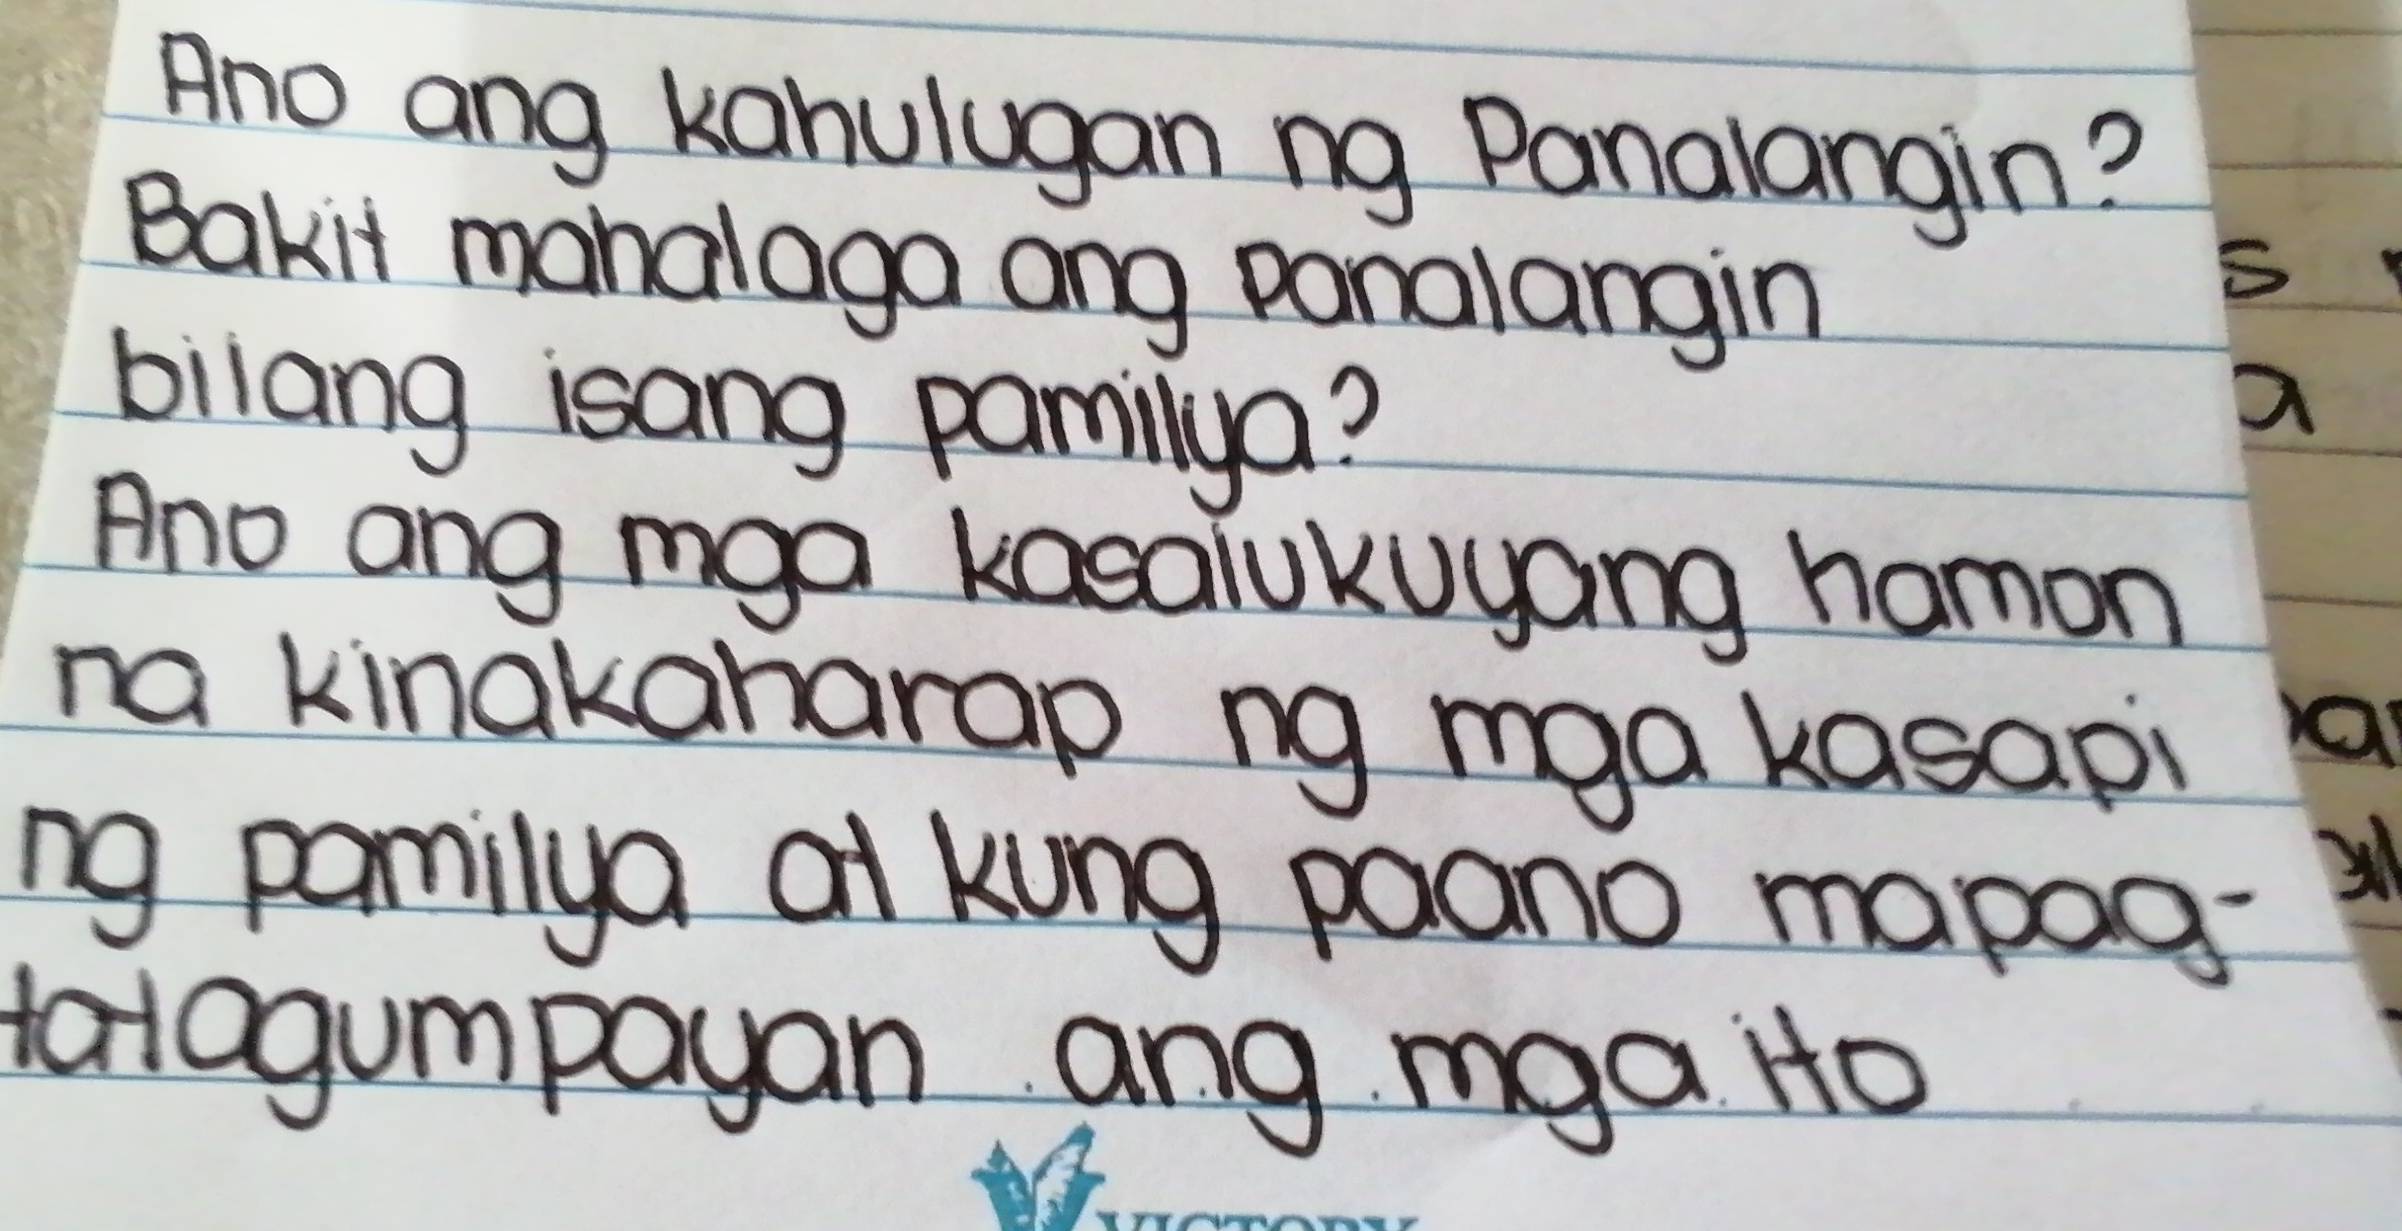 Ano ang kahulugan ng Panalangin?
Bakit mahalaga ang panalangin
bilang isang pamilya?
Ano ang mga kasalukuyang hamon
na kinakaharap ng mga kasapi
ng pamilya at kung paano mapag-
tatagumpayan ang mga ito
VICTORY
s
a